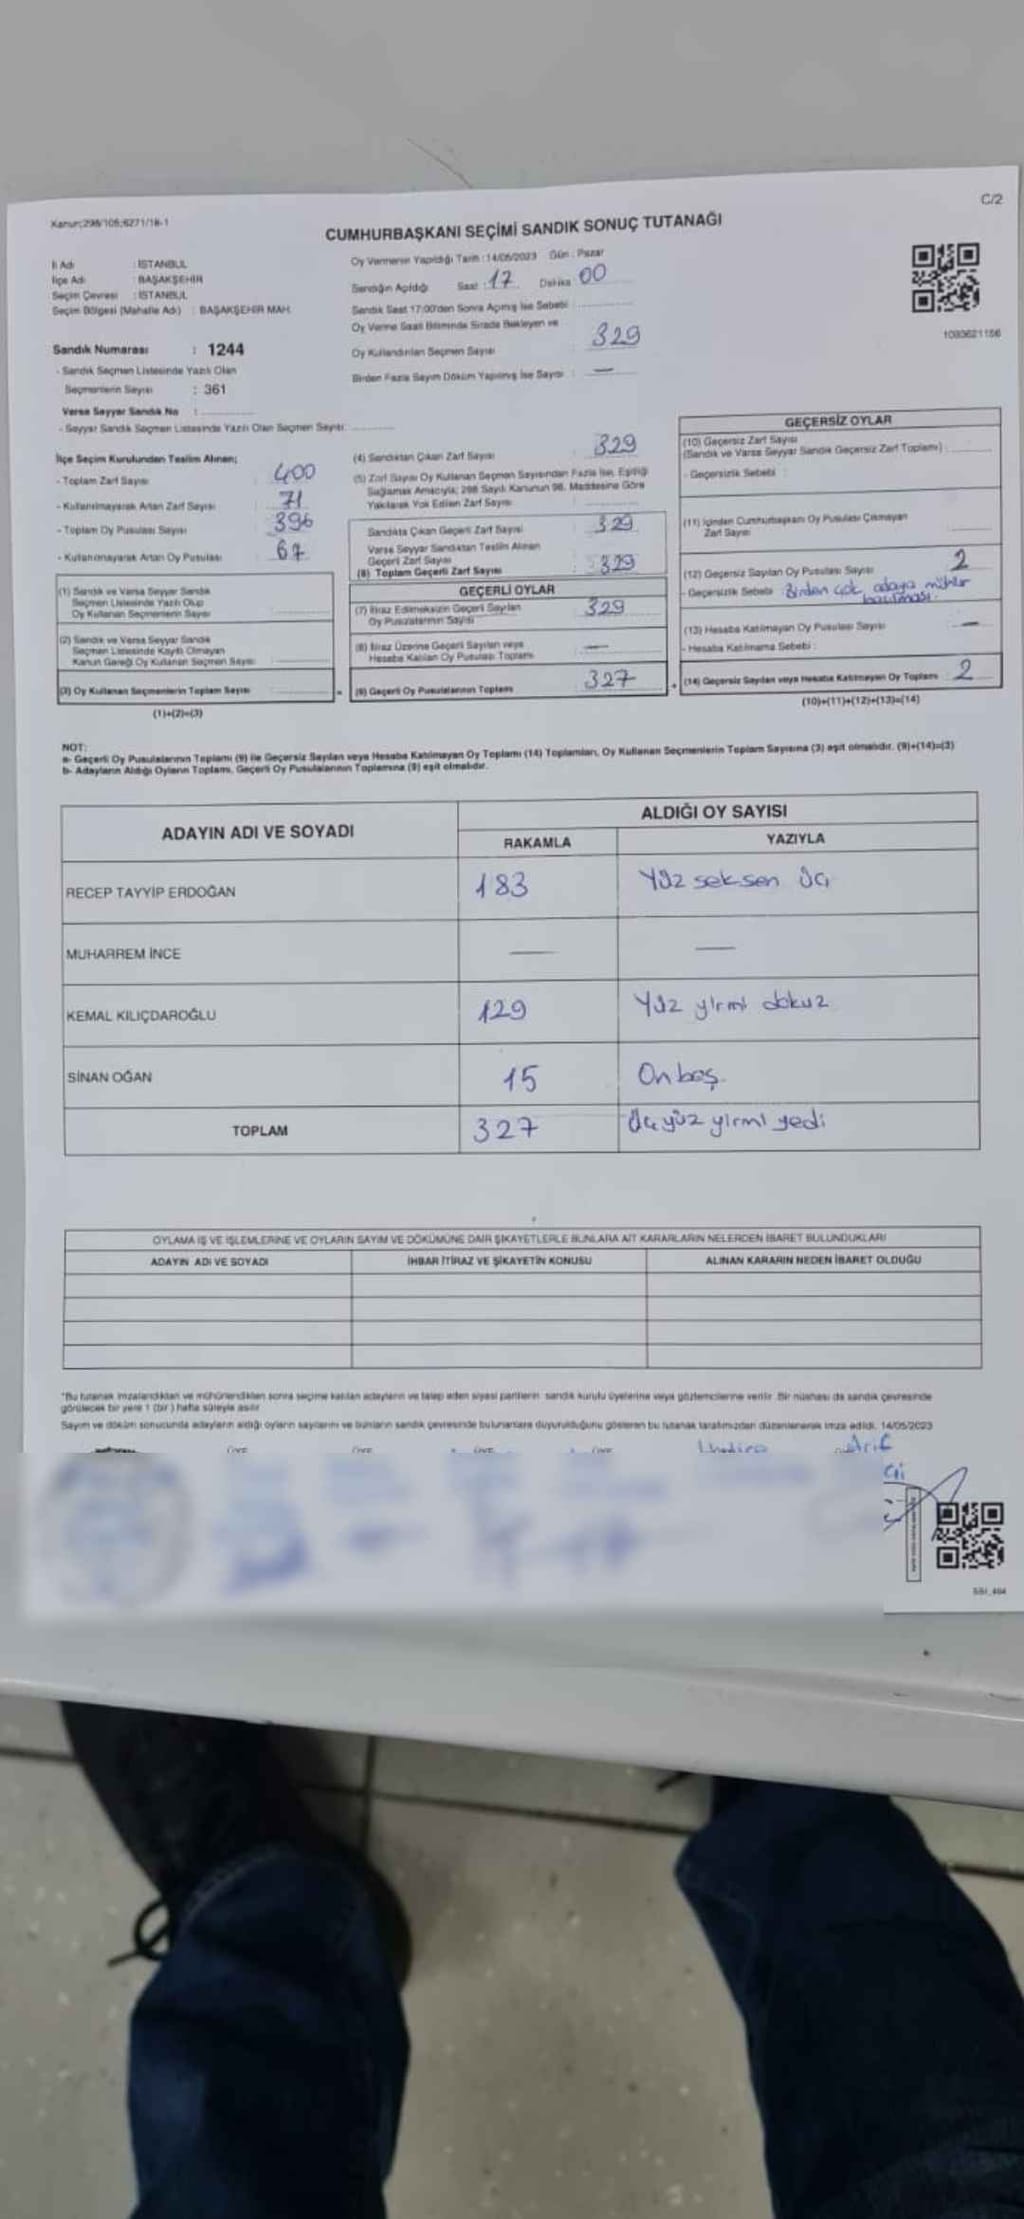 Kanun;298/105;6271/18-1
C/2
CUMHURBAŞKANI SEÇİMİ SANDIK SONUÇ TUTANAĞI
İl Adı : İSTANBUL
İlçe Adı : BAŞAKŞEHİR
Seçim Çevresi : İSTANBUL
Seçim Bölgesi (Mahalle Adı) : BAŞAKŞEHİR MAH.
Sandık Numarası : 1244
- Sandık Seçmen Listesinde Yazılı Olan
Seçmenlerin Sayısı : 361
Varsa Seyyar Sandık No :
- Seyyar Sandık Seçmen Listesinde Yazılı Olan Seçmen Sayısı:
Oy Vermenin Yapıldığı Tarih : 14/05/2023 Gün : Pazar
Sandığın Açıldığı Saat : 17 Dakika 00
Sandık Saat 17:00'den Sonra Açılmış İse Sebebi :
Oy Verme Saati Bitiminde Sırada Bekleyen ve
Oy Kullandırılan Seçmen Sayısı : 329
Birden Fazla Sayım Döküm Yapılmış İse Sayısı : —
1093621156
İlçe Seçim Kurulundan Teslim Alınan;
- Toplam Zarf Sayısı : 400
- Kullanılmayarak Artan Zarf Sayısı : 71
- Toplam Oy Pusulası Sayısı : 396
- Kullanılmayarak Artan Oy Pusulası : 67
(1) Sandık ve Varsa Seyyar Sandık
Seçmen Listesinde Yazılı Olup
Oy Kullanan Seçmenlerin Sayısı
(2) Sandık ve Varsa Seyyar Sandık
Seçmen Listesinde Kayıtlı Olmayan
Kanun Gereği Oy Kullanan Seçmen Sayısı
(3) Oy Kullanan Seçmenlerin Toplam Sayısı
(1)+(2)=(3)
(4) Sandıktan Çıkan Zarf Sayısı : 329
(5) Zarf Sayısı Oy Kullanan Seçmen Sayısından Fazla İse, Eşitliği
Sağlamak Amacıyla; 298 Sayılı Kanunun 98. Maddesine Göre
Yakılarak Yok Edilen Zarf Sayısı
Sandıkta Çıkan Geçerli Zarf Sayısı 329
Varsa Seyyar Sandıktan Teslim Alınan
Geçerli Zarf Sayısı
(6) Toplam Geçerli Zarf Sayısı 329
GEÇERLİ OYLAR
(7) İtiraz Edilmeksizin Geçerli Sayılan
Oy Pusulalarının Sayısı 329
(8) İtiraz Üzerine Geçerli Sayılan veya
Hesaba Katılan Oy Pusulası Toplamı —
(9) Geçerli Oy Pusulalarının Toplamı 327
GEÇERSİZ OYLAR
(10) Geçersiz Zarf Sayısı
(Sandık ve Varsa Seyyar Sandık Geçersiz Zarf Toplamı) :
- Geçersizlik Sebebi :
(11) İçinden Cumhurbaşkanı Oy Pusulası Çıkmayan
Zarf Sayısı
(12) Geçersiz Sayılan Oy Pusulası Sayısı 2
- Geçersizlik Sebebi Birden çok adaya mühür
basılması.
(13) Hesaba Katılmayan Oy Pusulası Sayısı —
- Hesaba Katılmama Sebebi :
(14) Geçersiz Sayılan veya Hesaba Katılmayan Oy Toplamı 2
(10)+(11)+(12)+(13)=(14)
NOT:
a- Geçerli Oy Pusulalarının Toplamı (9) ile Geçersiz Sayılan veya Hesaba Katılmayan Oy Toplamı (14) Toplamları, Oy Kullanan Seçmenlerin Toplam Sayısına (3) eşit olmalıdır. (9)+(14)=(3)
b- Adayların Aldığı Oyların Toplamı, Geçerli Oy Pusulalarının Toplamına (9) eşit olmalıdır.
ADAYIN ADI VE SOYADI
ALDIĞI OY SAYISI
RAKAMLA YAZIYLA
RECEP TAYYİP ERDOĞAN 183 Yüz seksen üç
MUHARREM İNCE — —
KEMAL KILIÇDAROĞLU 129 Yüz yirmi dokuz
SİNAN OĞAN 15 On beş
TOPLAM 327 Üçyüz yirmi yedi
OYLAMA İŞ VE İŞLEMLERİNE VE OYLARIN SAYIM VE DÖKÜMÜNE DAİR ŞİKAYETLERLE BUNLARA AİT KARARLARIN NELERDEN İBARET BULUNDUKLARI
ADAYIN ADI VE SOYADI İHBAR İTİRAZ VE ŞİKAYETİN KONUSU ALINAN KARARIN NEDEN İBARET OLDUĞU
"Bu tutanak imzalandıktan ve mühürlendikten sonra seçime katılan adayların ve talep eden siyasi partilerin sandık kurulu üyelerine veya gözlemcilerine verilir. Bir nüshası da sandık çevresinde
görülecek bir yere 1 (bir) hafta süreyle asılır.
Sayım ve döküm sonucunda adayların aldığı oyların sayılarını ve bunların sandık çevresinde bulunanlara duyurulduğunu gösteren bu tutanak tarafımızdan düzenlenerek imza edildi. 14/05/2023
Arif